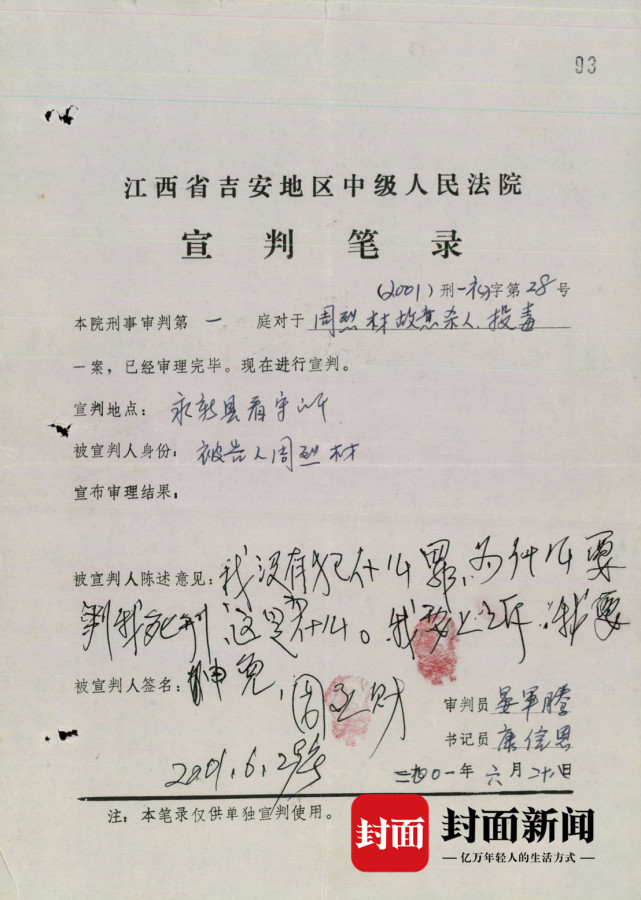 93
江西省吉安地区中级人民法院
宣判笔录
(2001)刑一初字第28号
本院刑事审判第一庭对于周烈材故意杀人、投毒
一案，已经审理完毕。现在进行宣判。
宣判地点：永新县看守所
被宣判人身份：被告人周烈材
宣布审理结果：
被宣判人陈述意见：我没有犯什么罪，为什么要
判我死刑 这是为什么。我要上诉，我要
申冤，
被宣判人签名：周 财
审判员 晏军腾
书记员 康信恩
2001.6.28号
二〇〇一年六月二十八日
注：本笔录仅供单独宣判使用。
封面
封面新闻
亿万年轻人的生活方式